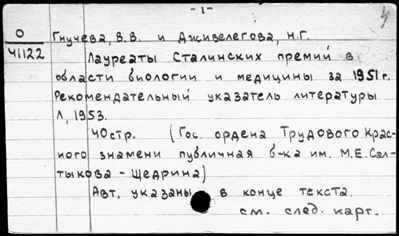 - 1 -
О Гнучева, В.В. и Джизелегова, Н.Г.
41122
Лауреаты Сталинских премий в
области биологии и медицины за 1951 г.
Рекомендательный указатель литературы
Л, 1953.
40 стр. (Гос. ордена Трудового Крас-
ного знамени публичная б-ка им. М.Е. Сал-
тыкова - Щедрина)
Авт. указаны в конце текста.
см. след. карт.